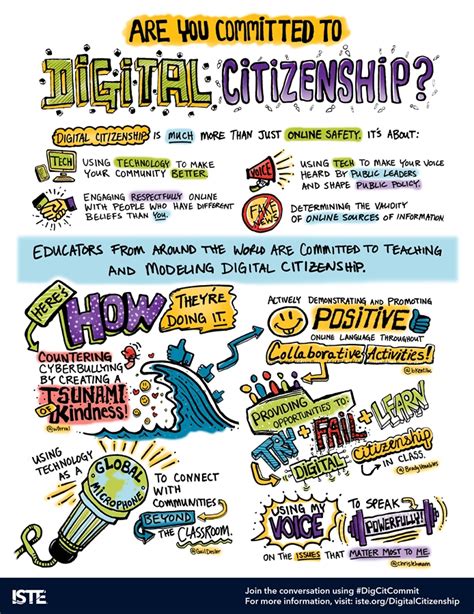 ARE YOU COMMITTED TO
DIGITAL CITIZENSHIP?
DIGITAL CITIZENSHIP IS MUCH MORE THAN JUST ONLINE SAFETY. IT'S ABOUT:
TECH
USING TECHNOLOGY TO MAKE
YOUR COMMUNITY BETTER.
VOICE
USING TECH TO MAKE YOUR VOICE
HEARD BY PUBLIC LEADERS
AND SHAPE PUBLIC POLICY.
ENGAGING RESPECTFULLY ONLINE
WITH PEOPLE WHO HAVE DIFFERENT
BELIEFS THAN YOU.
FAKE
NEWS
DETERMINING THE VALIDITY
OF ONLINE SOURCES OF INFORMATION
EDUCATORS FROM AROUND THE WORLD ARE COMMITTED TO TEACHING
AND MODELING DIGITAL CITIZENSHIP.
HERE'S
HOW
THEY'RE
DOING IT.
COUNTERING
CYBERBULLYING
BY CREATING A
TSUNAMI
OF KINDNESS!
ACTIVELY DEMONSTRATING AND PROMOTING
POSITIVE
ONLINE LANGUAGE THROUGHOUT
COLLABORATIVE ACTIVITIES!
PROVIDING
OPPORTUNITIES TO:
TRY + FAIL + LEARN
DIGITAL CITIZENSHIP
IN CLASS.
USING
TECHNOLOGY
AS A
GLOBAL
MICROPHONE
TO CONNECT
WITH
COMMUNITIES
BEYOND
THE
CLASSROOM.
@GailDesler
USING MY
VOICE
TO SPEAK
POWERFULLY!
ON THE ISSUES THAT MATTER MOST TO ME.
ISTE
Join the conversation using #DigCitCommit
For more information, visit: iste.org/DigitalCitizenship